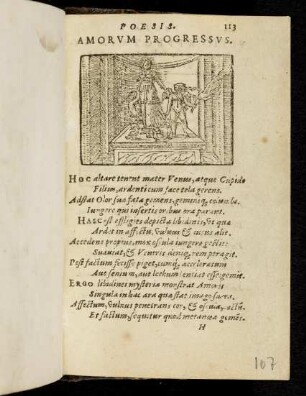 POESIS. 113
AMORVM PROGRESSVS.
HOC altare tenent mater Venus, atque Cupido
Filius, ardenti cum face tela gerens.
Adstat Olor sua fata gemens, geminæque columbæ
Iungere qui insertis or bus ora parant.
HAEC est effigies depicta libidinis, vt qua
Ardet in affectu, vulnus & ictus alit.
Accedens propius, mox oscula iungere gestit:
Suauiat, & Veneris
Post factum fecisse piget,
Aut senium, aut lethum sentiat esse
ERGO libidinis mysteria monstrat Amoris
Singula in hac ara quæ stat imago sacra.
Affectum, vulnus penetrans cor, & oscula, actum
Et factum, sequitur quod
H
107